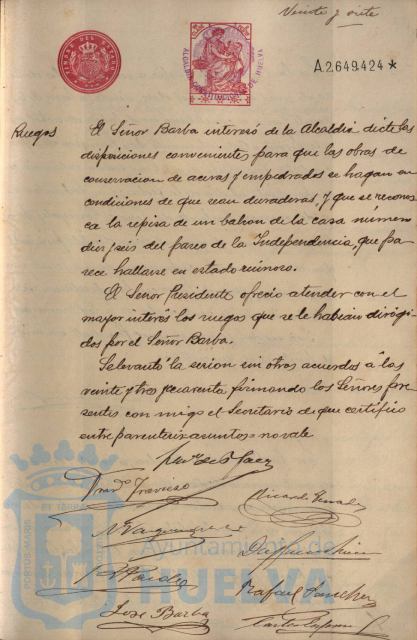 Veinte y siete
A.2.649.424*
TIMBRE DEL ESTADO
ALCALDIA CONSTITUCIONAL DE HUELVA
Ruegos
El Señor Barba interesó de la Alcaldia dicte las
disposiciones convenientes para que las obras de
conservacion de aceras y empedrados se hagan en
condiciones de que sean duraderas, y que se reconoz
ca la repisa de un balcon de la casa número
diez y seis del paseo de la Independencia, que pa
rece hallarse en estado ruinoso.
El Señor Presidente ofreció atender con el
mayor interés los ruegos que se le habian dirigi
dos por el Señor Barba.
Se levantó la sesion sin otros acuerdos á las
veinte y tres y cuarenta firmando los Señores pre
sentes con migo el Secretario de que certifico
entre parentesis asuntos no vale
José Barba
Rafael Sanchez
PORTUS MARIS ET TERRAE
Ayuntamiento de
HUELVA